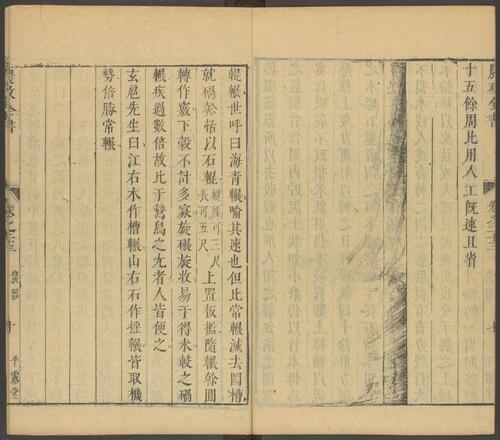 十五餘周比用人工旣速且省
輥輾世呼曰海青輾喻其速也但此常輾減去圓槽
就碢榦栝以石輥輥徑可三尺長可五尺上置板檻隨輾榦圓
轉作竅下穀不計多寡旋輾旋收易于得米較之碢
輾疾過數倍故比于鷙鳥之尤者人皆便之
玄扈先生曰江右木作槽輾山右石作揺輾皆取機
勢倍勝常輾
農政全書
卷之二十三
農器
十
平露堂